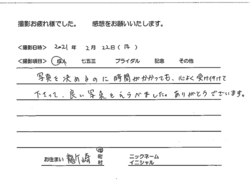 撮影お疲れ様でした。 感想をお願いいたします。
<撮影日時> 2021 年 2 月 22 日 ( )
<撮影項目> 七五三 ブライダル 記念 その他
写真を決めるのに時間がかかっても、心よく受け付けて
下さって、良い写真をえらびました。ありがとうございます。
お住まい 龍ヶ崎 市 町 村 ニックネーム イニシャル